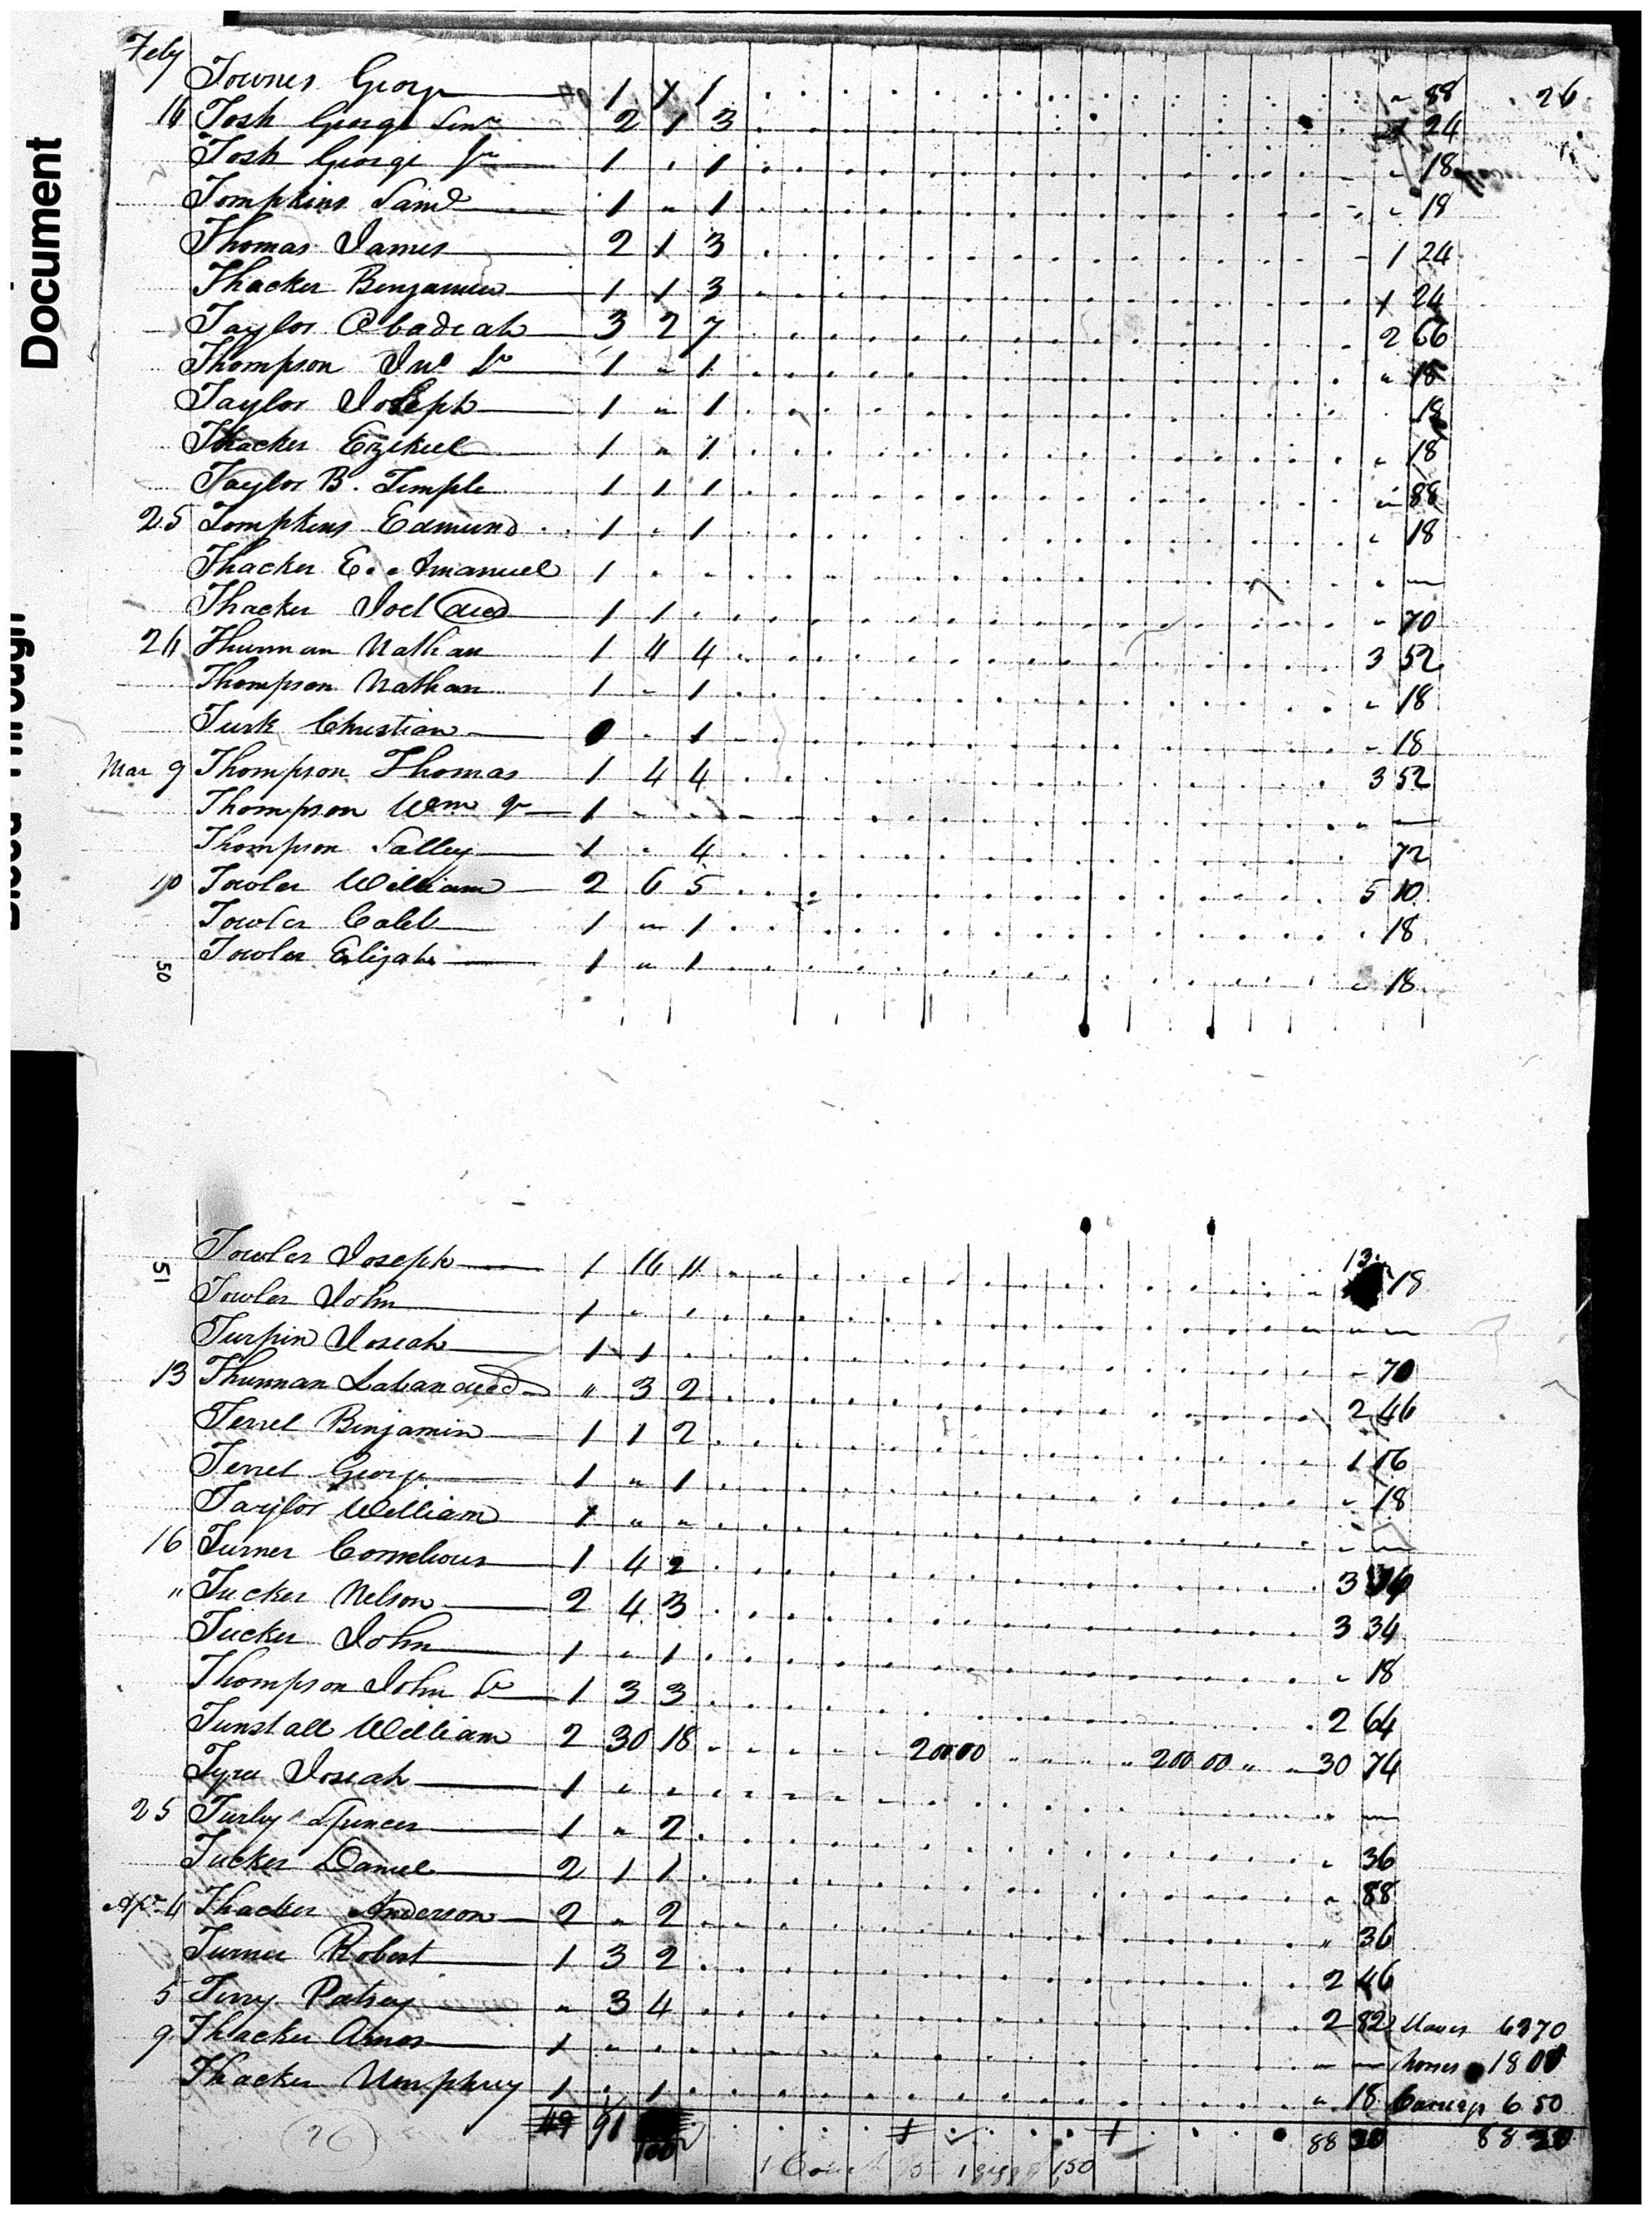 Document
Feby
Townes George 1 1 1 " 88 26
14 Tosh George Senr 2 1 3 1 24
Tosh George Jr 1 " 1 " 18
Tompkins Saml 1 " 1 " 18
Thomas James 2 1 3 1 24
Thacker Benjamin 1 1 3 1 24
Taylor Obadiah 3 2 7 2 66
Thompson Jno Sr 1 " 1 " 18
Taylor Joseph 1 " 1 18
Thacker Ezikiel 1 " 1 " 18
Taylor B. Temple 1 1 1 " 88
25 Tompkins Edmund 1 " 1 " 18
Thacker E. Amanuel 1 " " " —
Thacker Joel decd 1 1 " 70
26 Thurman Nathan 1 4 4 3 52
Thompson Nathan 1 " 1 " 18
Turk Christian 0 " 1 " 18
Mar 9 Thompson Thomas 1 4 4 3 52
Thompson Wm Jr 1 " " " —
Thompson Salley 1 " 4 72
10 Towler William 2 6 5 5 10
Towler Caleb 1 " 1 18
50 Towler Elijah 1 " 1 " 18
51 Towler Joseph 1 16 11 13 18
Towler John 1 " " —
Turpin Josiah 1 1 " 70
13 Thurman Laban decd " 3 2 2 46
Terrel Benjamin 1 1 2 1 06
Terrel George 1 " 1 " 18
Taylor William 1 " " " —
16 Turner Cornelious 1 4 2 3 16
" Tucker Nelson 2 4 3 3 34
Tucker John 1 " 1 " 18
Thompson John Sr 1 3 3 2 64
Tunstall William 2 30 18 200 00 " " " " 200 00 " " 30 74
Tyree Josiah 1 " " " —
25 Turley Spencer 1 " 2 " 36
Tucker Daniel 2 1 1 " 88
Apr 4 Thacker Anderson 2 " 2 " 36
Turner Robert 1 3 2 2 46
5 Terry Patsey " 3 4 2 82 Slaves 63 70
9 Thacker Amos 1 " " — horses 18 00
Thacker Umphrey 1 " 1 " 18 Carriage 6 50
49 91 100 88 20 88 20
(26) 1 Coach 1 gigg 150